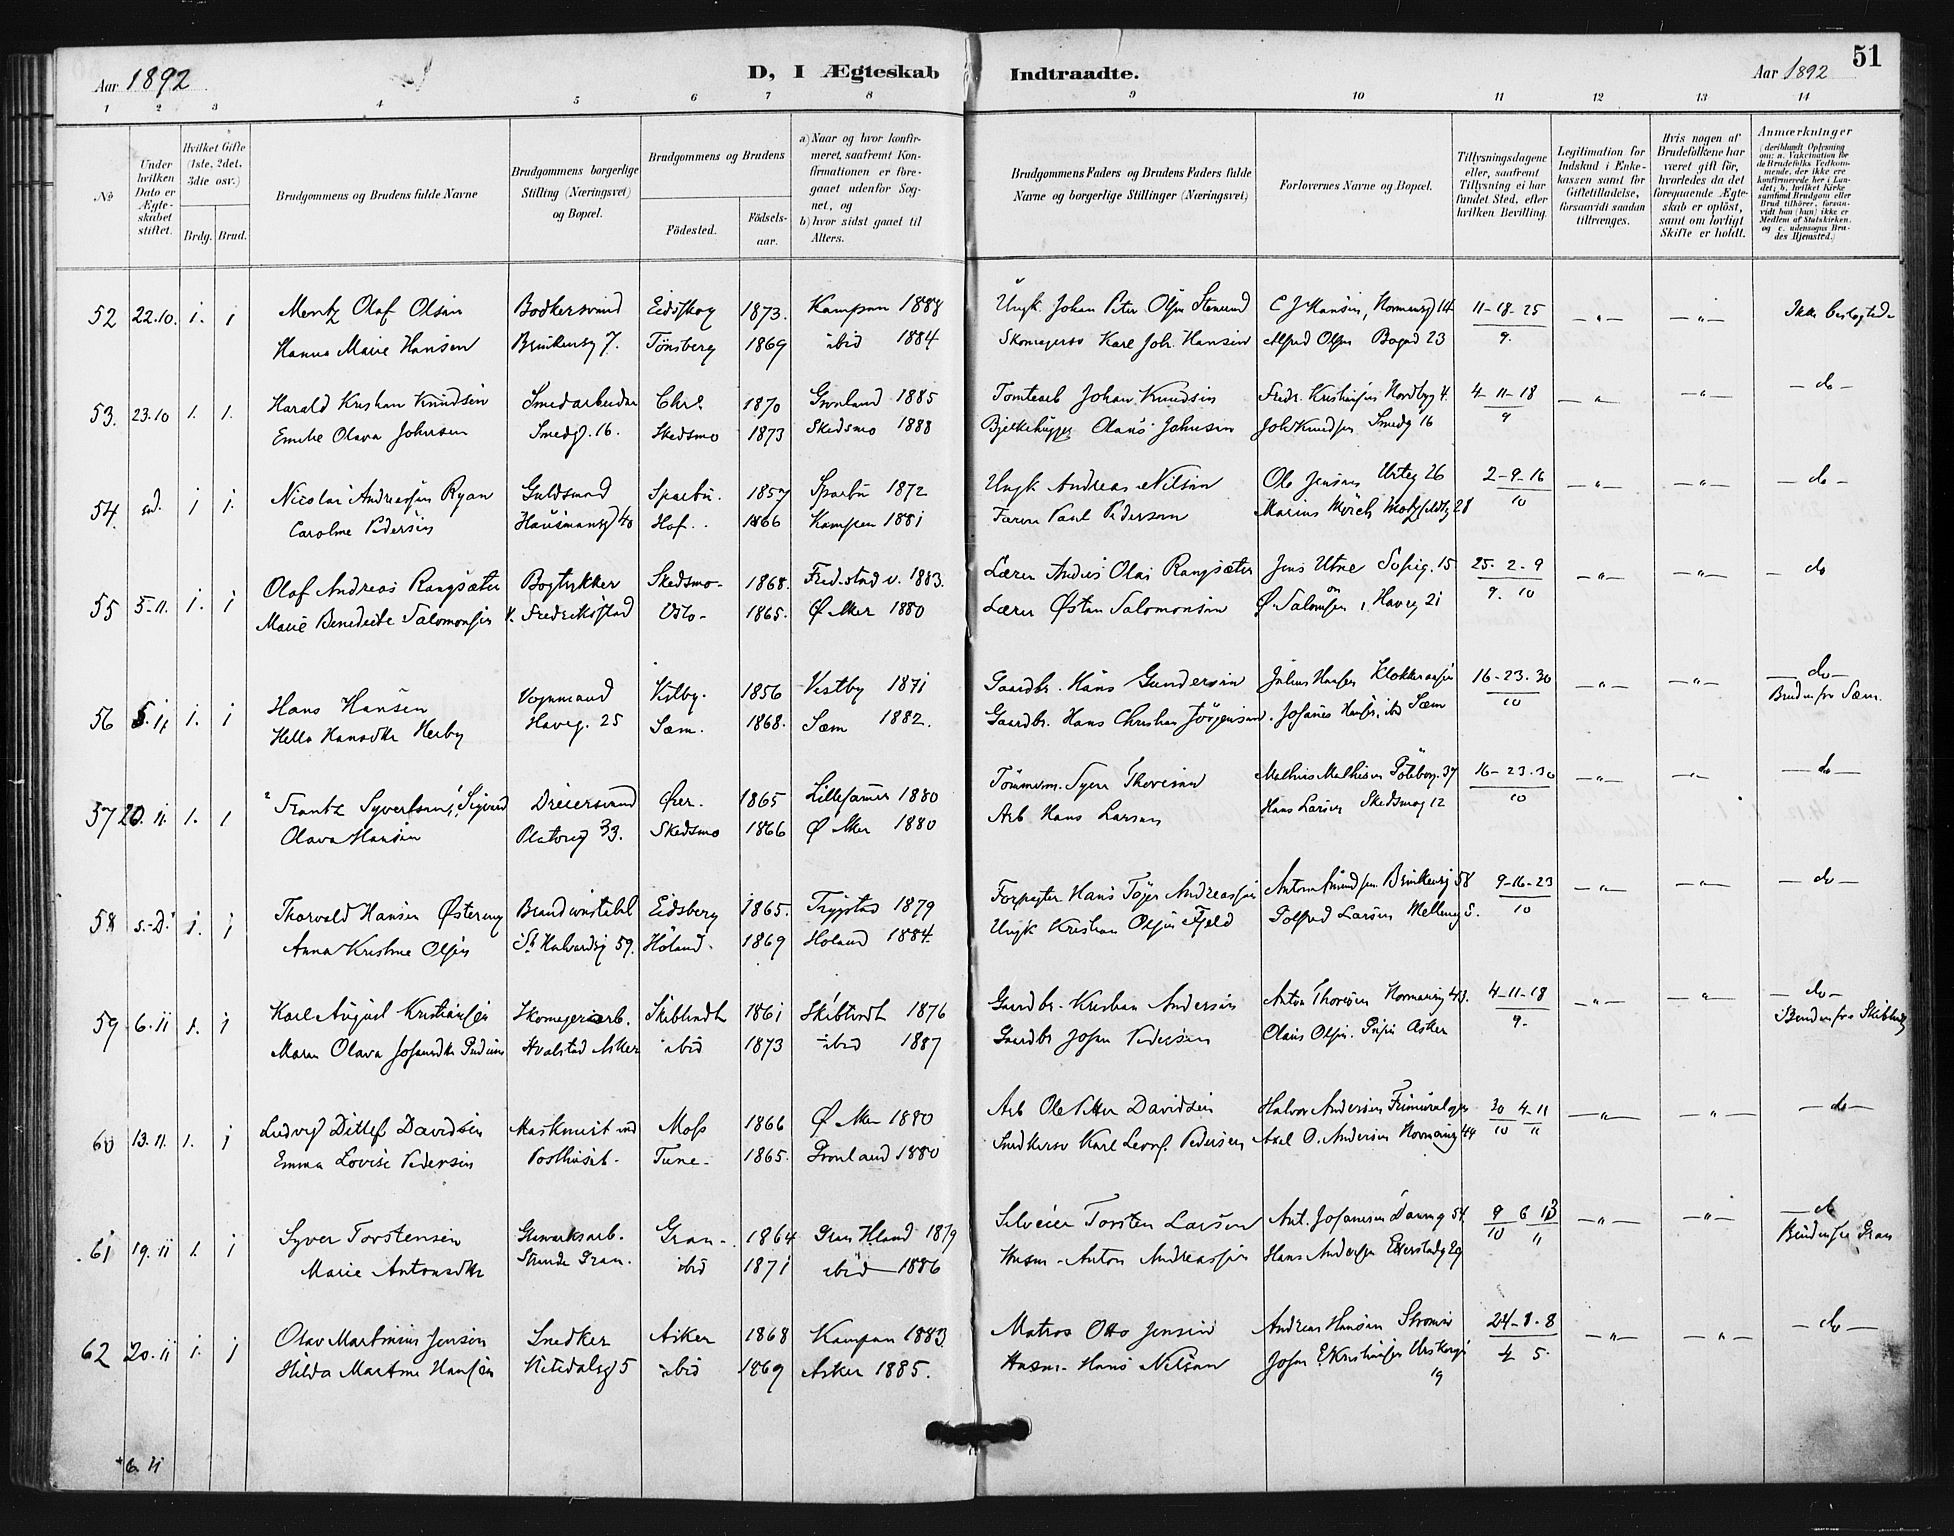 51
Aar 1892 D, I Ægteskab Indtraadte. Aar 1892
1 2 3 4 5 6 7 8 9 10 11 12 13 14
No
Under hvilken Dato er Ægteskabet stiftet.
Hvilket Gifte (1ste, 2det, 3die osv.)
Brdg. Brud.
Brudgommens og Brudens fulde Navne
Brudgommens borgerlige Stilling (Næringsvei) og Bopæl.
Brudgommens og Brudens
Fødested. Fødselsaar.
a) Naar og hvor konfirmeret, saafremt Konfirmationen er foregaaet udenfor Sognet, og
b) hvor sidst gaaet til Alters.
Brudgommens Faders og Brudens Faders fulde Navne og borgerlige Stillinger (Næringsvei)
Forlovernes Navne og Bopæl.
Tillysningsdagene eller, saafremt Tillysning ei har fundet Sted, efter hvilken Bevilling.
Legitimation for Indskud i Enkekassen samt for Giftetilladelse, forsaavidt saadan tiltrænges.
Hvis nogen af Brudefolkene har været gift før, hvorledes da det foregaaende Ægteskab er opløst, samt om lovligt Skifte er holdt.
Anmærkninger (deriblandt Oplysning om: a. Vakcination for de Brudefolks Vedkommende, der ikke ere konfirmerede her i Landet; b. hvilket Kirkesamfund Brudgom eller Brud tilhører, forsaavidt han (hun) ikke er Medlem af Statskirken, og c. udensogns Brudes Hjemsted.)
52 22.10. 1. 1 Mentz Olaf Olsen Bødkersvend Eidskog 1873. Kampen 1888 Ungk. Johan Peter Olsen Stensrud C J Hansen, Normansg 14 11-18-25 — " — — " — Ikke beslægtede
Hanna Marie Hansen Brinkensg 7. Tønsberg 1869 ibid 1884 Skomagersv Karl Joh. Hansen Alfred Olsen Bogad 23 9.
53. 23.10 1. 1. Harald Kristian Knudsen Smedarbeider Chr. 1870 Grønland 1885 Tomteart Johan Knudsen Fredr. Kristiansen Nordbyg 4. 4-11-18 — " — — " — — do —
Emilie Olava Johnsen Smedg. 16. Skedsmo 1873 Skedsmo 1888 Bjelkehugger Olaus Johnsen Joh Knudsen Smedg 16 9
54. 1 1. Nicolai Andreasen Ryan Guldsmed Sparbu. 1857 Sparbu 1872 Ungk Andreas Nilsen Ole Jensen Urteg 26 2-9-16 — " — — " — — do —
Caroline Pedersen Hausmansg 40 Hof.. 1866 Kampen 1881 Farver Paul Pedersen Marius Mørch Motzfeldtsg 28 10
55 5-11. 1. 1 Olaf Andreas Rangsæter Bogtrykker Skedsmo- 1868. Fredrstad v. 1883. Lærer Andreas Olai Rangsæter Jens Utne Sofieg. 15 25. 2. 9 — " — — " — — do
Marie Benedicte Salomonsen V. Fredrikstad Oslo- 1865. Ø Aker 1880 Lærer Østen Salomonsen Ø. Salomonsen, Haveg 21 9. 10
56 5.11 1. 1 Hans Hansen Vognmand Vestby. 1856 Vestby 1871 Gaardbr. Hans Gundersen Julius Hansen 16-23-30 — " — — " — — do —
Hella Hansdtr Herby Haveg. 25 Sæm. 1868. Sæm 1882. Gaardbr. Hans Christian Jørgensen. Johanes Hansen, ibd Sæm 10 Bruden fra Sæm.
57 20. 11. 1. 1 Frantz Syvertsen, Sigurd Dreiersvend Øier. 1865 Lillehamer 1880 Tømmerm. Syver Thoresen Mathias Mathisen Tøieborg. 37 16-23.30 — " — — " — — do —
Olava Hansen Platoug 33. Skedsmo 1866 Ø Aker 1880 Arb Hans Larsen Hans Larsen Skedsmog 12 10
58 s.-D. 1. 1 Thorvald Hansen Østereng Brandconstabel Eidsberg 1865. Trygstad 1879 Forpagter Hans Tøger Andreassen Anton Amundsen Brinkensg 58 9-16-23 — " — — " — — do —
Anna Kristine Olsen St Halvardsg 59. Høland. 1869 Høland 1884. Ungk Kristian Olsen Fjeld Tolfred Larsen Mellemg 5. 10
59 6.11 1. 1 Karl August Kristiansen Skomagerarb. Skibtvedt 1861 Skibtvedt 1876 Gaardbr. Kristian Andersen Anton Thoresen Normansg 43. 4-11-18 — " — — " — — do —
Maren Olava Johansdtr Pedersen Hvalstad Asker ibid 1873 ibid 1887 Gaardbr Johan Pedersen Olaus Olsen. Asker 9. Bruden fra Skibtvedt
60 13.11. 1. 1 Ludvig Ditlef Davidsen Maskinist ved Moss 1866 Ø Aker 1880 Arb Ole Petter Davidsen Halvor Andersen 30 4-11 — " — — " — — do —
Emma Lovise Pedersen Posthuset. Tune. 1865. Grønland 1880 Snedkersv Karl Leonh. Pedersen Axel O. Andersen Normansg 44 10 11
61 19.11 1. 1 Syver Torstensen Glasværksarb. Gran. 1864 Gran Hland 1879 Selveier Torsten Larsen Ant. Johansen 54. 9 6 13 — " — — " — — do
Marie Antonsdtr Gran. ibid 1871 ibid 1886 Husm. Anton Andreassen Hans Andersen 29 10 11 Bruden fra Gran
62 20.11 1. 1 Olav Martinius Jensen Snedker Asker 1868 Kampen 1883 Matros Otto Jensen Andreas Hansen 24-1-8 — " — — " — — do —
Hilda Martine Hansen Nitedalsg 5 ibid 1869 Asker 1885. Husm. Hans Nilsen Johan E. Kristiansen 19 4 5.
* 6. 11